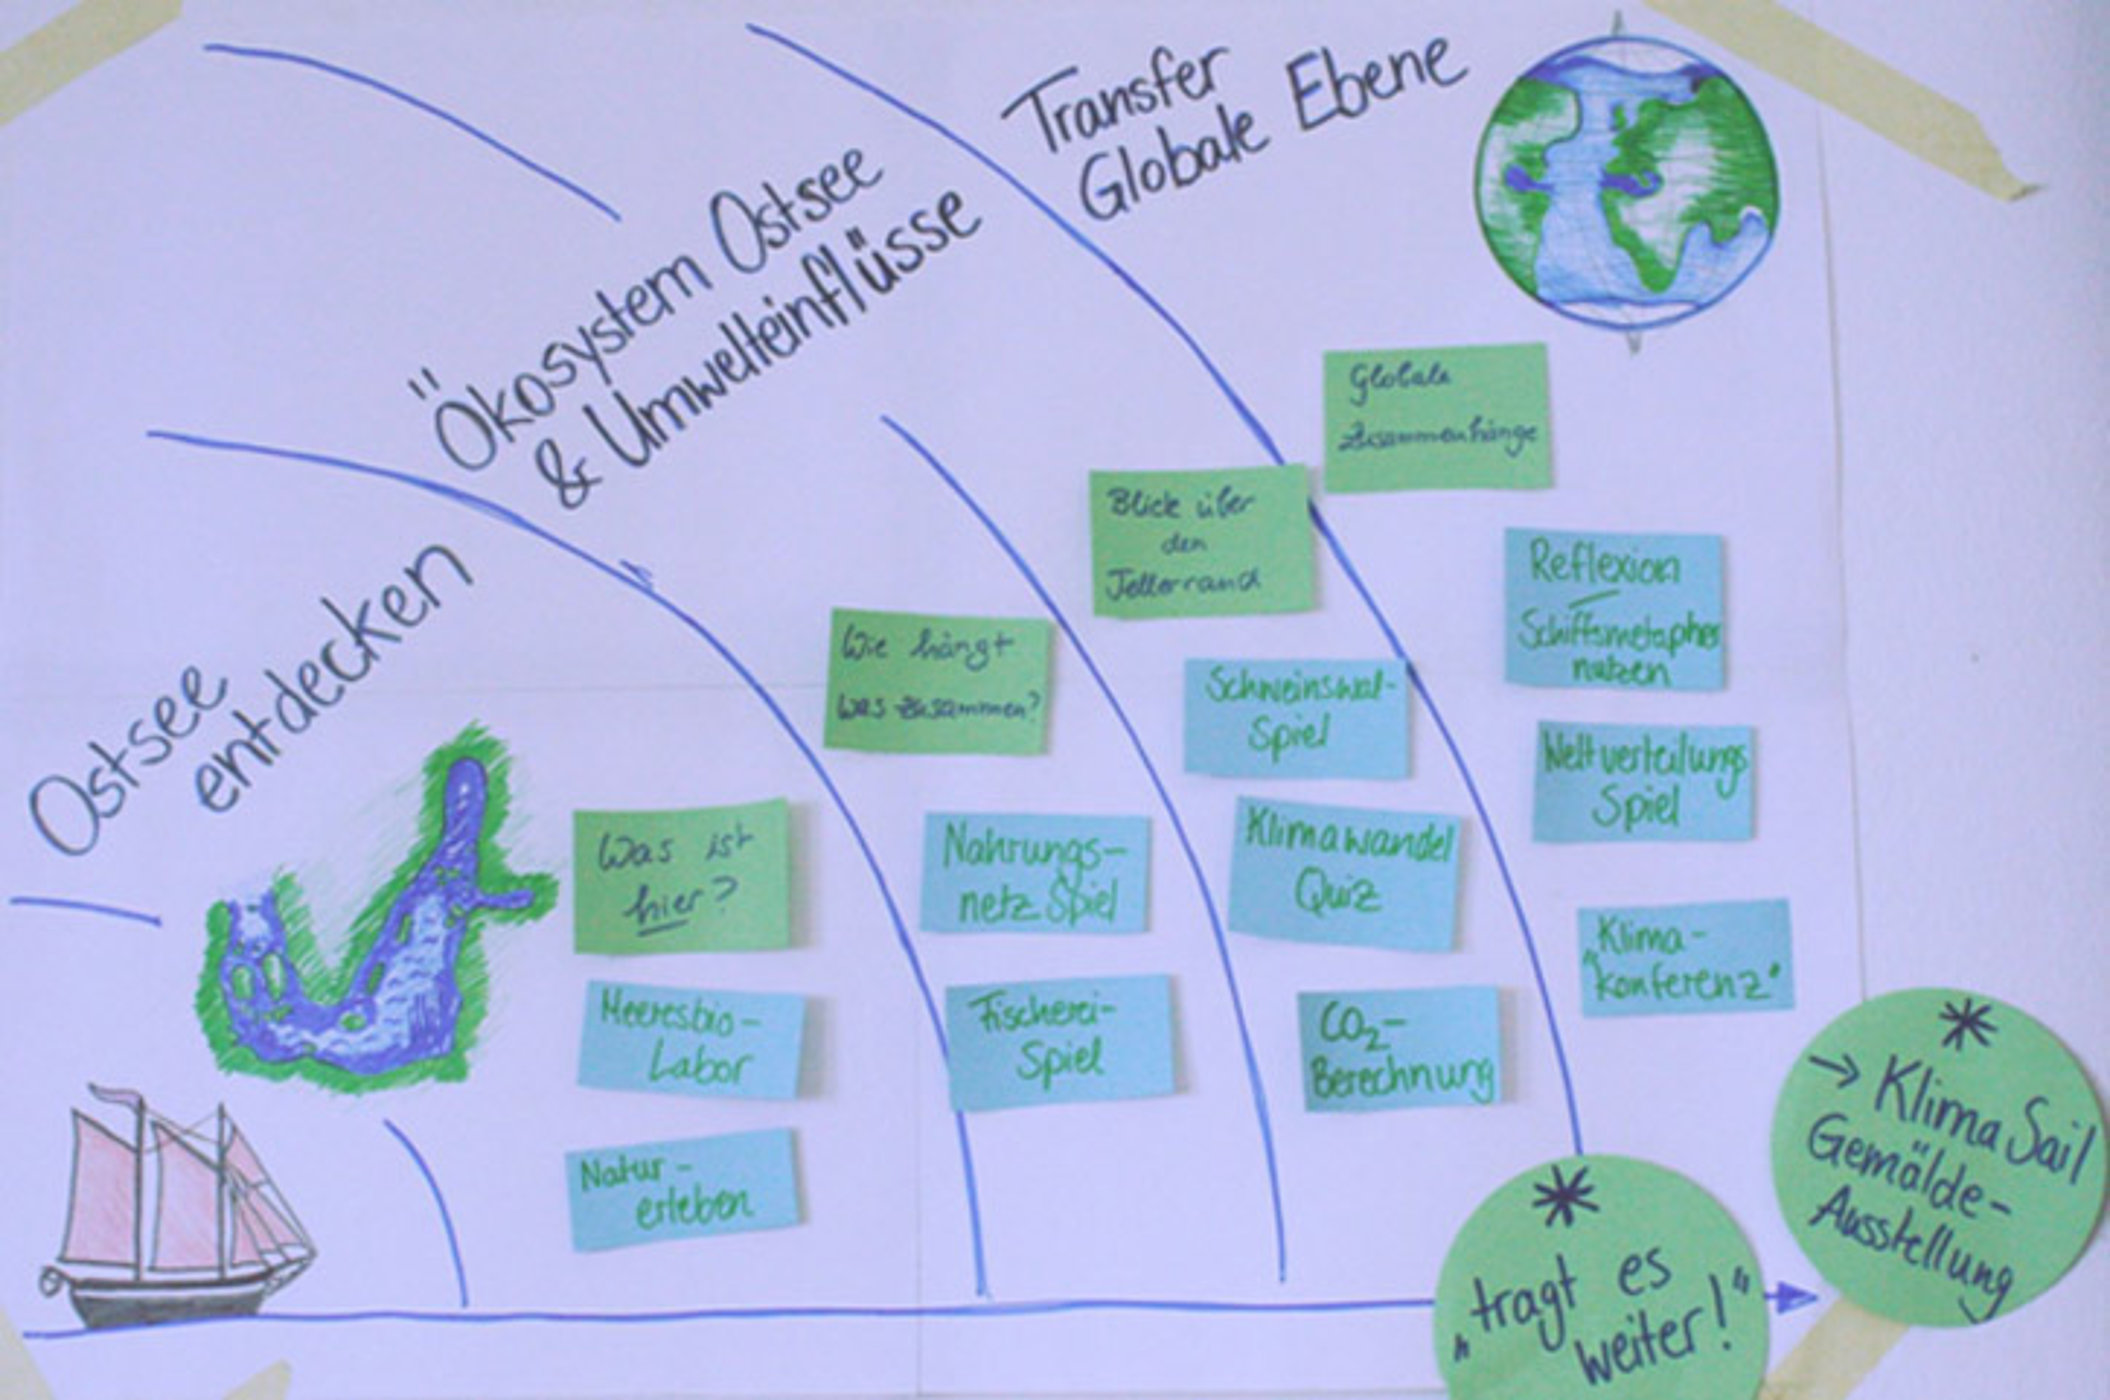 Transfer
Globale Ebene
Ökosystem Ostsee
& Umwelteinflüsse
Ostsee
entdecken
Globale
Zusammenhänge
Blick über
den
Tellerrand
Wie hängt
was zusammen?
Was ist
hier?
Reflexion
Schiffsmetapher
nutzen
Schweinswal-
Spiel
Weltverteilungs
Spiel
Nahrungs-
netz Spiel
Klimawandel
Quiz
„Klima-
konferenz"
Meeresbio-
Labor
Fischerei-
Spiel
CO₂-
Berechnung
Natur-
erleben
*
„tragt es
weiter!"
*
→ KlimaSail
Gemälde-
Ausstellung